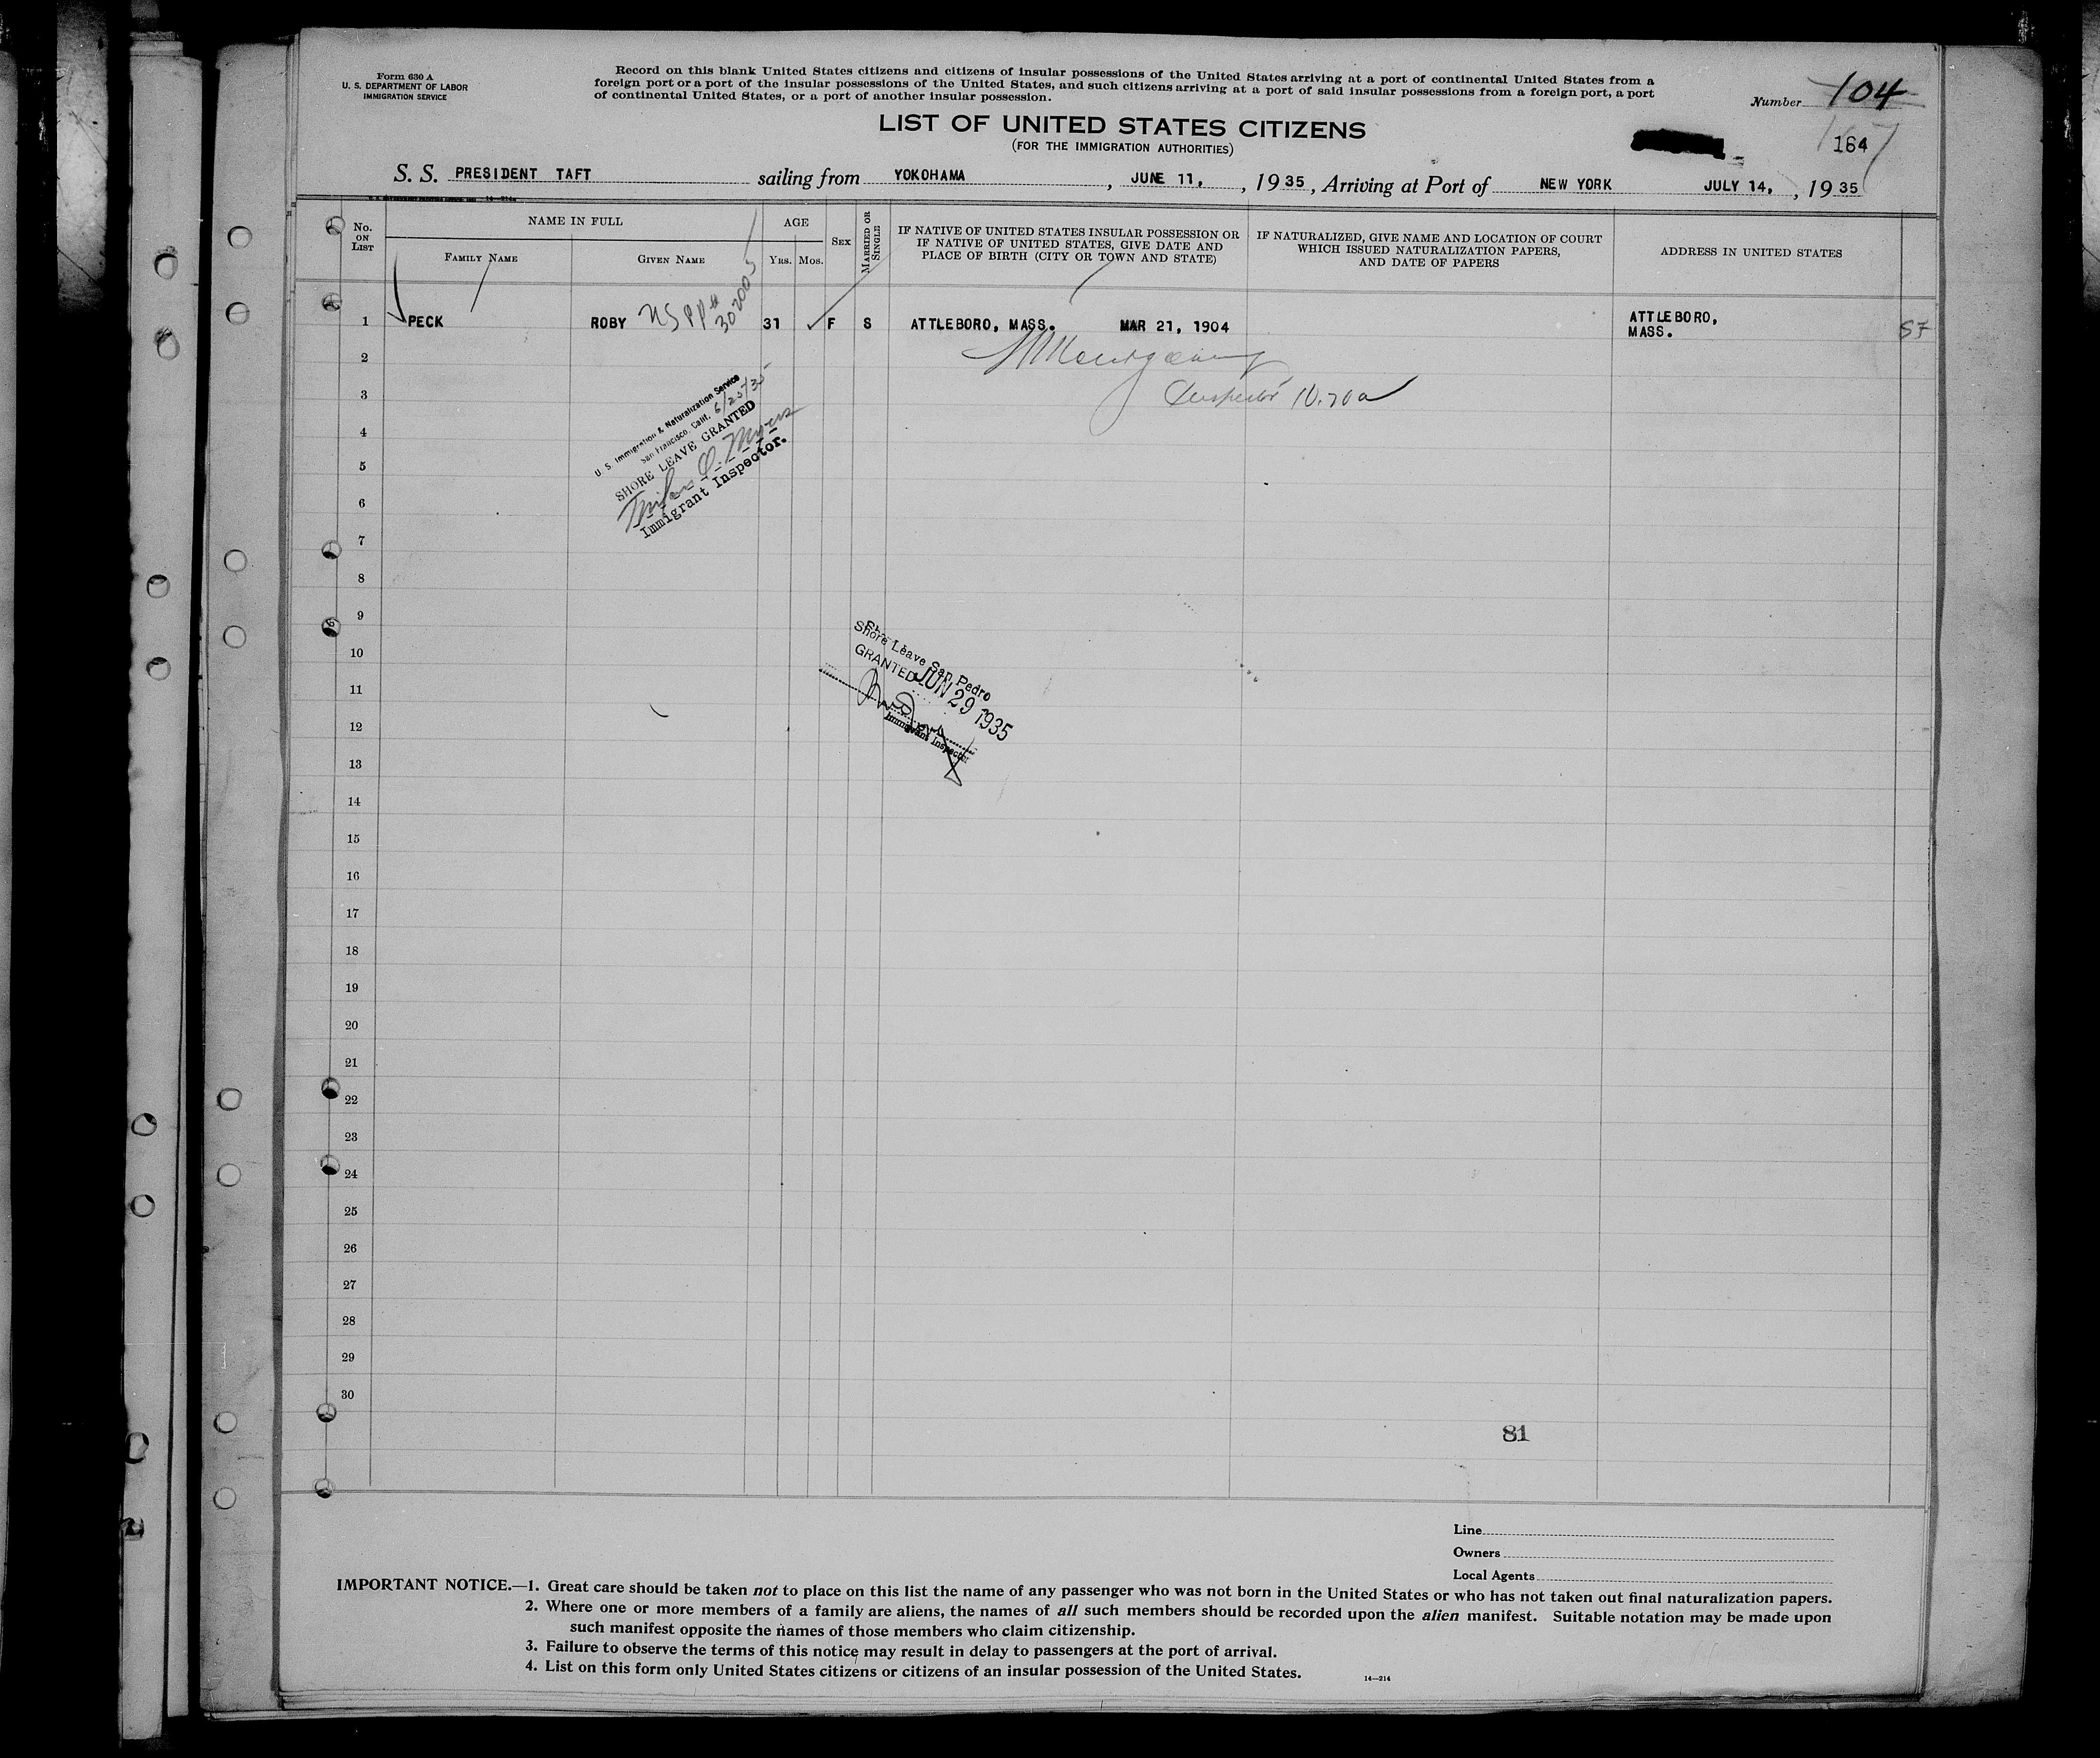 Form 630 A
U. S. DEPARTMENT OF LABOR
IMMIGRATION SERVICE
Record on this blank United States citizens and citizens of insular possessions of the United States arriving at a port of continental United States from a
foreign port or a port of the insular possessions of the United States, and such citizens arriving at a port of said insular possessions from a foreign port, a port
of continental United States, or a port of another insular possession.
Number 104
LIST OF UNITED STATES CITIZENS
(FOR THE IMMIGRATION AUTHORITIES)
164
S. S. PRESIDENT TAFT sailing from YOKOHAMA, JUNE 11, , 1935, Arriving at Port of NEW YORK JULY 14, , 1935
No. ON LIST
NAME IN FULL
FAMILY NAME
GIVEN NAME
AGE
YRS. MOS.
SEX
MARRIED OR SINGLE
IF NATIVE OF UNITED STATES INSULAR POSSESSION OR
IF NATIVE OF UNITED STATES, GIVE DATE AND
PLACE OF BIRTH (CITY OR TOWN AND STATE)
IF NATURALIZED, GIVE NAME AND LOCATION OF COURT
WHICH ISSUED NATURALIZATION PAPERS,
AND DATE OF PAPERS
ADDRESS IN UNITED STATES
1 PECK ROBY US PP# 302005 31 F S ATTLEBORO, MASS. MAR 21, 1904 ATTLEBORO,
MASS.
SF
2
Inspector
3
4
5
6
7
8
9
10
11
12
13
14
15
16
17
18
19
20
21
22
23
24
25
26
27
28
29
30
U. S. Immigration & Naturalization Service
San Francisco, Calif. 6/25/35
SHORE LEAVE GRANTED
Immigrant Inspector.
Shore Leave San Pedro
GRANTED JUN 29 1935
Immigrant Inspector
81
Line
Owners
Local Agents
IMPORTANT NOTICE.—1. Great care should be taken not to place on this list the name of any passenger who was not born in the United States or who has not taken out final naturalization papers.
2. Where one or more members of a family are aliens, the names of all such members should be recorded upon the alien manifest. Suitable notation may be made upon
such manifest opposite the names of those members who claim citizenship.
3. Failure to observe the terms of this notice may result in delay to passengers at the port of arrival.
4. List on this form only United States citizens or citizens of an insular possession of the United States.
14—214